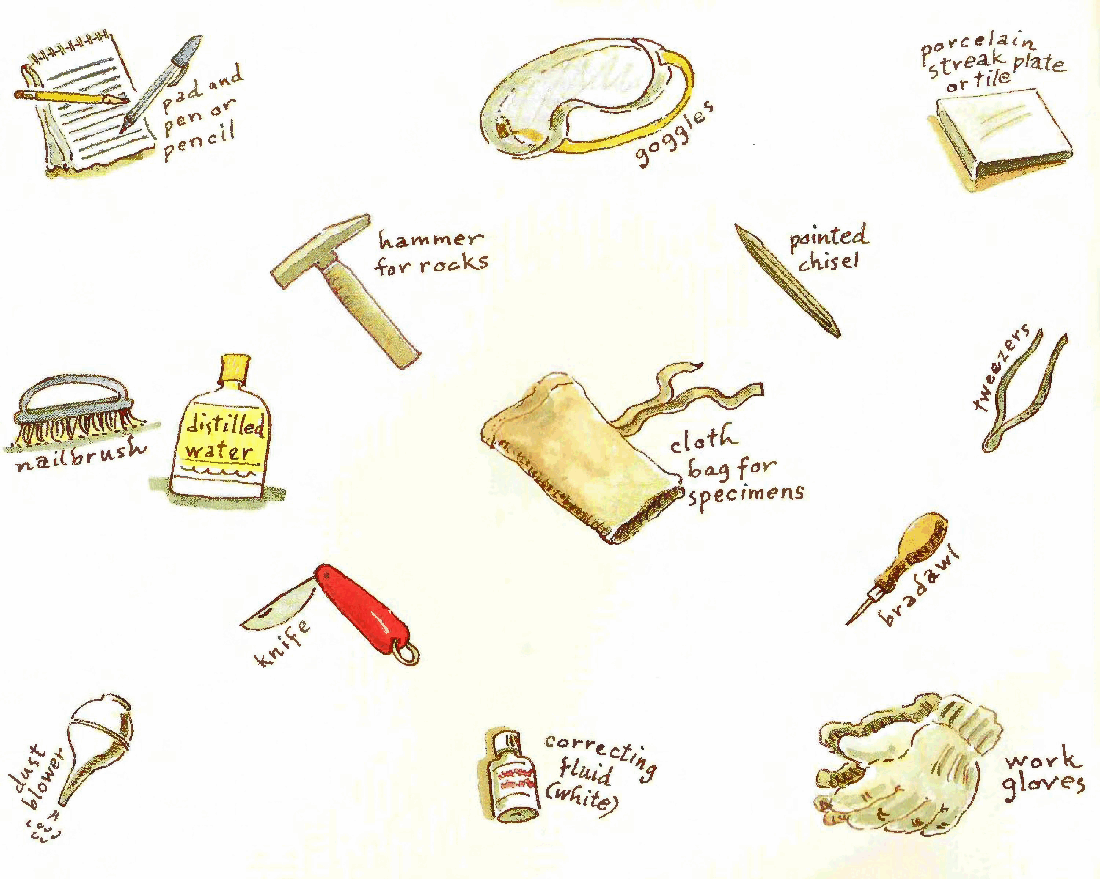 pad and
pen or
pencil
goggles
porcelain
streak plate
or tile
hammer
for rocks
pointed
chisel
tweezers
nailbrush
distilled
water
cloth
bag for
specimens
bradawl
knife
dust
blower
correcting
fluid
(white)
work
gloves